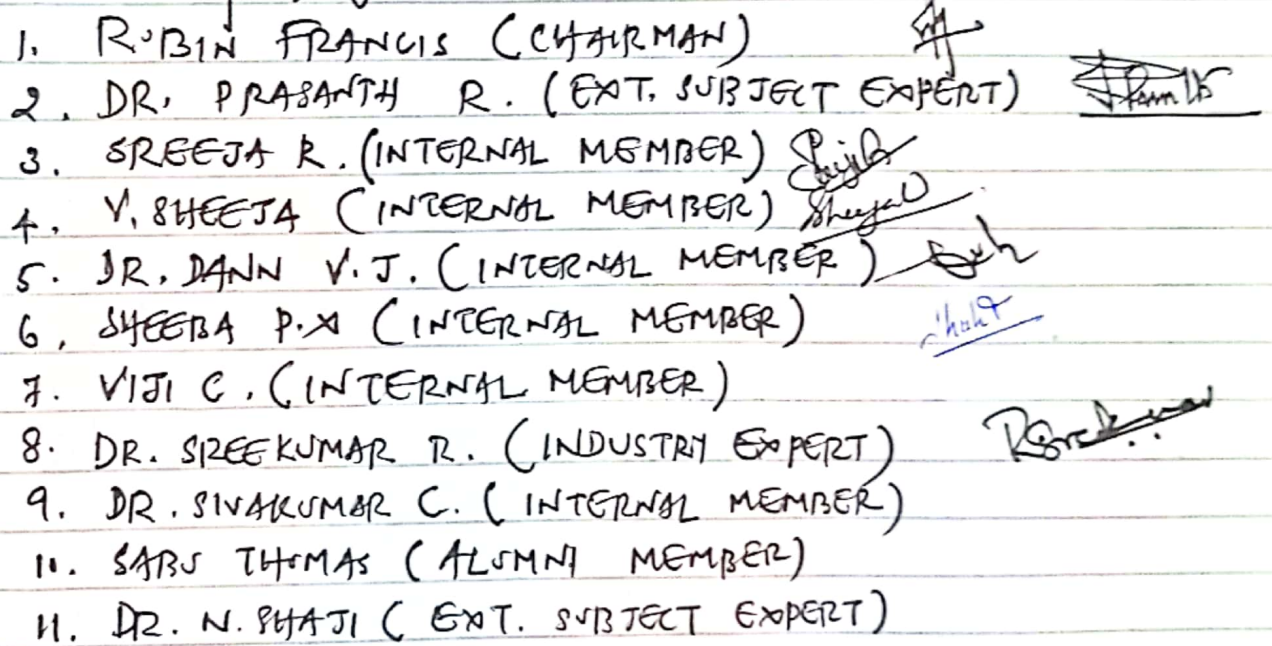 1. ROBIN FRANCIS (CHAIRMAN)
2. DR. PRASANTH R. (EXT. SUBJECT EXPERT)
3. SREEJA R. (INTERNAL MEMBER)
4. V. SHEEJA (INTERNAL MEMBER) SheejaV
5. DR. DANN V.J. (INTERNAL MEMBER)
6. SHEEBA P.X (INTERNAL MEMBER)
7. VIJI C. (INTERNAL MEMBER)
8. DR. SREEKUMAR R. (INDUSTRY EXPERT) RSreekumar
9. DR. SIVAKUMAR C. (INTERNAL MEMBER)
10. SABU THOMAS (ALUMNI MEMBER)
11. DR. N. SHAJI (EXT. SUBJECT EXPERT)